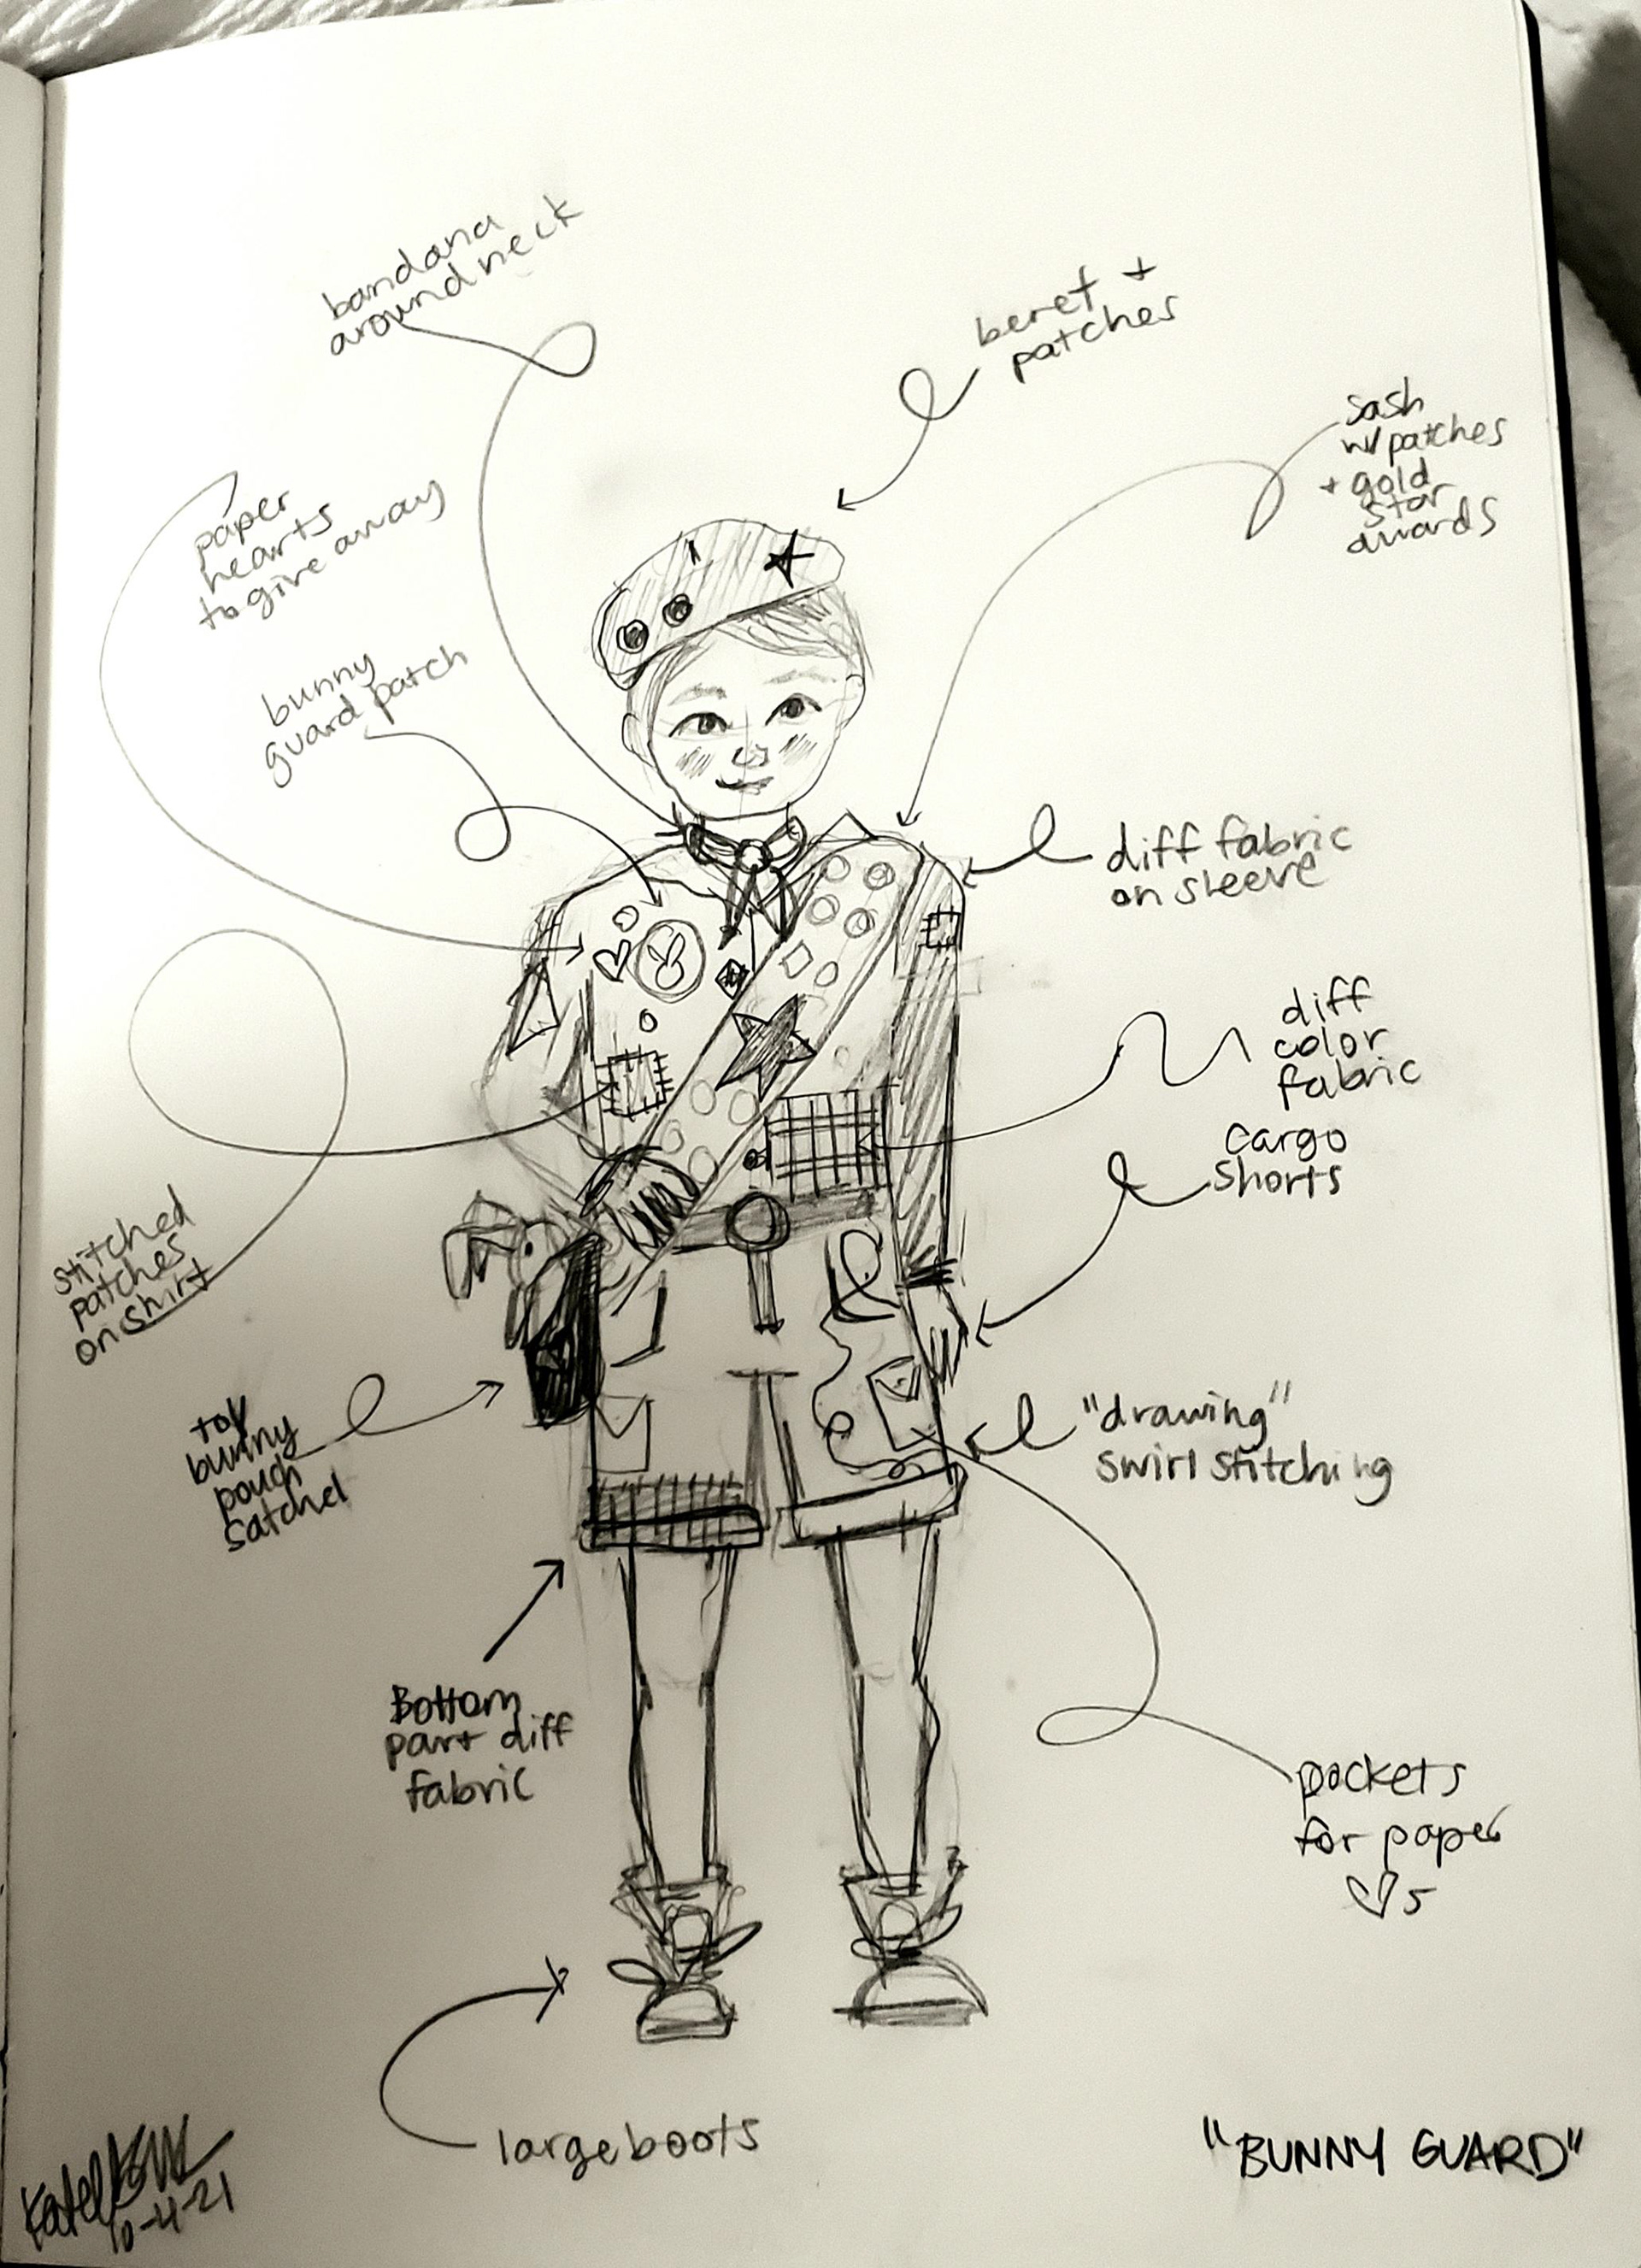 bandana
around neck
beret +
patches
sash
w/patches
+ gold
star
awards
paper
hearts
to give away
bunny
guard patch
diff fabric
on sleeve
diff
color
fabric
cargo
shorts
stitched
patches
on shirt
toy
bunny
pouch
satchel
"drawing"
swirl stitching
Bottom
part diff
fabric
pockets
for paper
♡s
large boots
"BUNNY GUARD"
10-4-21